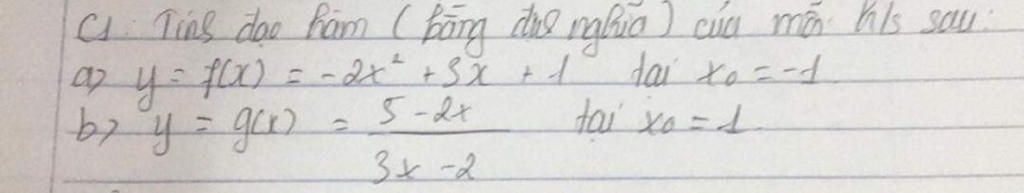 C1. Tính đạo hàm (bằng định nghĩa) của mỗi h/s sau:
a) y = f(x) = -2x² + 3x + 1 tại x₀ = -1
b) y = g(x) = (5 - 2x)/(3x - 2) tại x₀ = 1